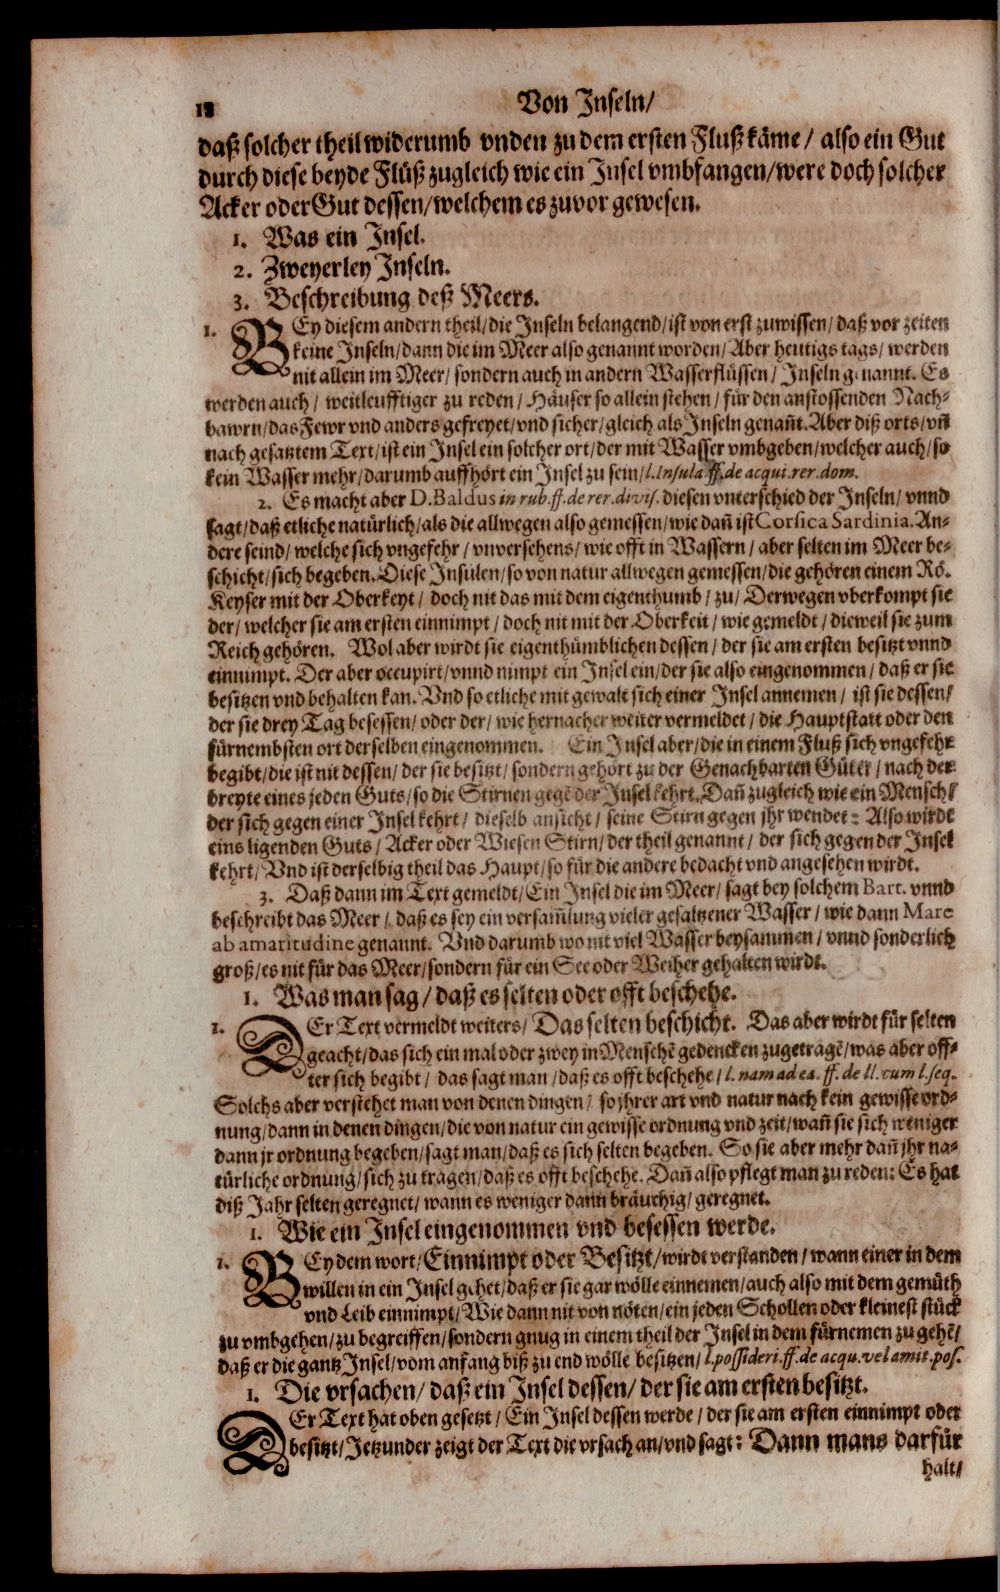 12 Von Inseln/
daß solcher theil widerumb vnden zu dem ersten Fluß käme / also ein Gut
durch diese beyde Flüß zugleich wie ein Insel vmbfangen/were doch solcher
Acker oder Gut dessen/welchem es zuvor gewesen.
1. Was ein Insel.
2. Zweyerley Inseln.
3. Beschreibung deß Meers.
1. BEy diesem andern theil/die Inseln belangend/ist von erst zuwissen/daß vor zeiten
keine Inseln/dann die im Meer also genannt worden/Aber heutigs tags/werden
nit allein im Meer/sondern auch in andern Wasserflüssen/Inseln genannt. Es
werden auch / weitleufftiger zu reden / Häuser so allein stehen / für den anstossenden Nach-
bawrn/das Fewr vnd anders gefreyet/vnd sicher/gleich als Inseln genañt. Aber diß orts/vñ
nach gesatztem Text/ist ein Insel ein solcher ort/der mit Wasser vmbgeben/welcher auch/so
kein Wasser mehr/darumb auffhört ein Insel zu sein/l. Insula ff. de acqui. rer. dom.
2. Es macht aber D. Baldus in rub. ff. de rer. divis. diesen vnterschied der Inseln/vnnd
sagt/daß etliche natürlich/als die allwegen also gemessen/wie dañ ist Corsica Sardinia. An-
dere seind/welche sich vngefehr/vnversehens/wie offt in Wassern/aber selten im Meer be-
schicht/sich begeben. Diese Insulen/so von natur allwegen gemessen/die gehören einem Rö.
Keyser mit der Oberkeyt / doch nit das mit dem eigenthumb / zu / Derwegen vberkompt sie
der/welcher sie am ersten einnimpt/doch nit mit der Oberkeit/wie gemeldt/dieweil sie zum
Reich gehören. Wol aber wirdt sie eigenthümblichen dessen/der sie am ersten besitzt vnnd
einnimpt. Der aber occupirt/vnnd nimpt ein Insel ein/der sie also eingenommen/daß er sie
besitzen vnd behalten kan. Vnd so etliche mit gewalt sich einer Insel annemen/ist sie dessen/
der sie drey Tag besessen/oder der/wie hernacher weiter vermeldet/die Hauptstatt oder den
fürnembsten ort derselben eingenommen. Ein Insel aber/die in einem Fluß sich vngefehr
begibt/die ist nit dessen/der sie besitzt/sondern gehört zu der Genachbarten Güter/nach der
breyte eines jeden Guts/so die Stirnen gegē der Insel kehrt. Dañ zugleich wie ein Mensch/
der sich gegen einer Insel kehrt/dieselb ansicht/seine Stirn gegen jhr wendet: Also wirdt
eins ligenden Guts/Acker oder Wiesen Stirn/der theil genannt/der sich gegen der Insel
kehrt/Vnd ist derselbig theil das Haupt/so für die andere bedacht vnd angesehen wirdt.
3. Daß dann im Text gemeldt/Ein Insel die im Meer/sagt bey solchem Bart. vnnd
beschreibt das Meer/daß es sey ein versam̃lung vieler gesaltzener Wasser/wie dann Mare
ab amaritudine genannt. Vnd darumb wo nit viel Wasser beysammen/vnnd sonderlich
groß/es nit für das Meer/sondern für ein See oder Weiher gehalten wirdt.
1. Was man sag/daß es selten oder offt beschehe.
1. DEr Text vermeldt weiters/Das selten beschicht. Das aber wirdt für selten
geacht/das sich ein mal oder zwey in Menschē gedencken zugetragē/was aber öff-
ter sich begibt/das sagt man/daß es offt beschehe/l. nam ad ea. ff. de ll. cum l. seq.
Solchs aber verstehet man von denen dingen/so jhrer art vnd natur nach kein gewisse ord-
nung/dann in denen dingen/die von natur ein gewisse ordnung vnd zeit/wañ sie sich weniger
dann jr ordnung begeben/sagt man/daß es sich selten begeben. So sie aber mehr dañ jhr na-
türliche ordnung/sich zu tragen/daß es offt beschehe. Dañ also pflegt man zu reden: Es hat
diß Jahr selten geregnet/wann es weniger dann bräuchig/geregnet.
1. Wie ein Insel eingenommen vnd besessen werde.
1. BEy dem wort/Einnimpt oder Besitzt/wirdt verstanden/wann einer in dem
willen in ein Insel gehet/daß er sie gar wölle einnemen/auch also mit dem gemüth
vnd Leib einnimpt/Wie dann nit von nöten/ein jeden Schollen oder kleinest stück
zu vmbgehen/zu begreiffen/sondern gnug in einem theil der Insel in dem fürnemen zu gehē/
daß er die gantz Insel/vom anfang biß zu end wölle besitzen/l. possideri. ff. de acqu. vel amit. pos.
1. Die vrsachen/daß ein Insel dessen/der sie am ersten besitzt.
DEr Text hat oben gesetzt/Ein Insel dessen werde/der sie am ersten einnimpt oder
besitzt/Jetzunder zeigt der Text die vrsach an/vnd sagt: Dann mans darfür
halt/